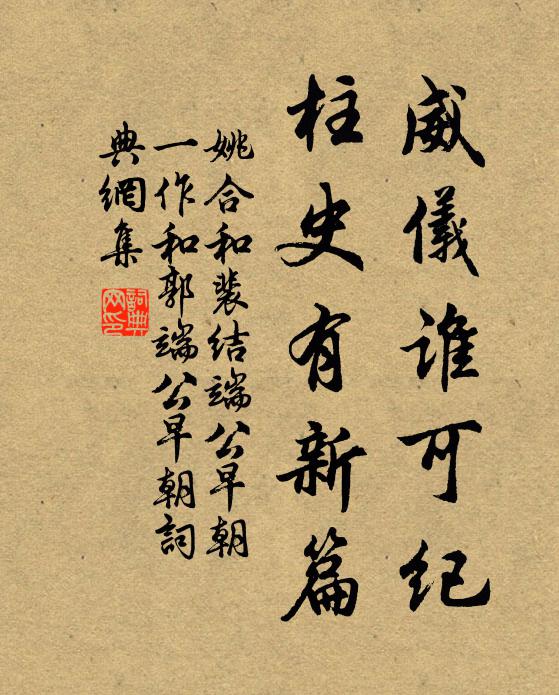 威儀誰可紀
柱史有新篇
姚合和裴结端公早朝
一作和郭端公早朝詞
典網集
詞典
网印